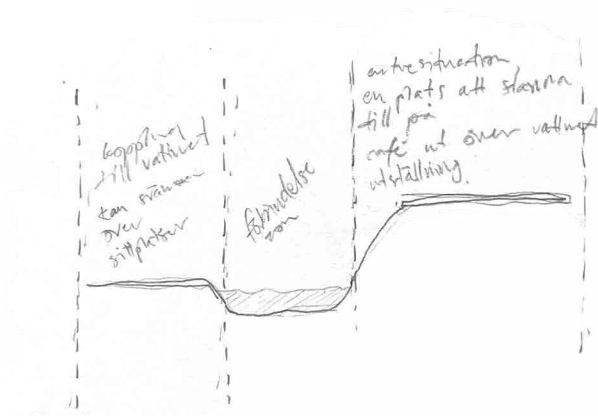 koppling
till vattnet
kan svämma
över
sittplatser
förbindelse
zon
entresituation,
en plats att stanna
till på
café ut över vattnet
utställning.